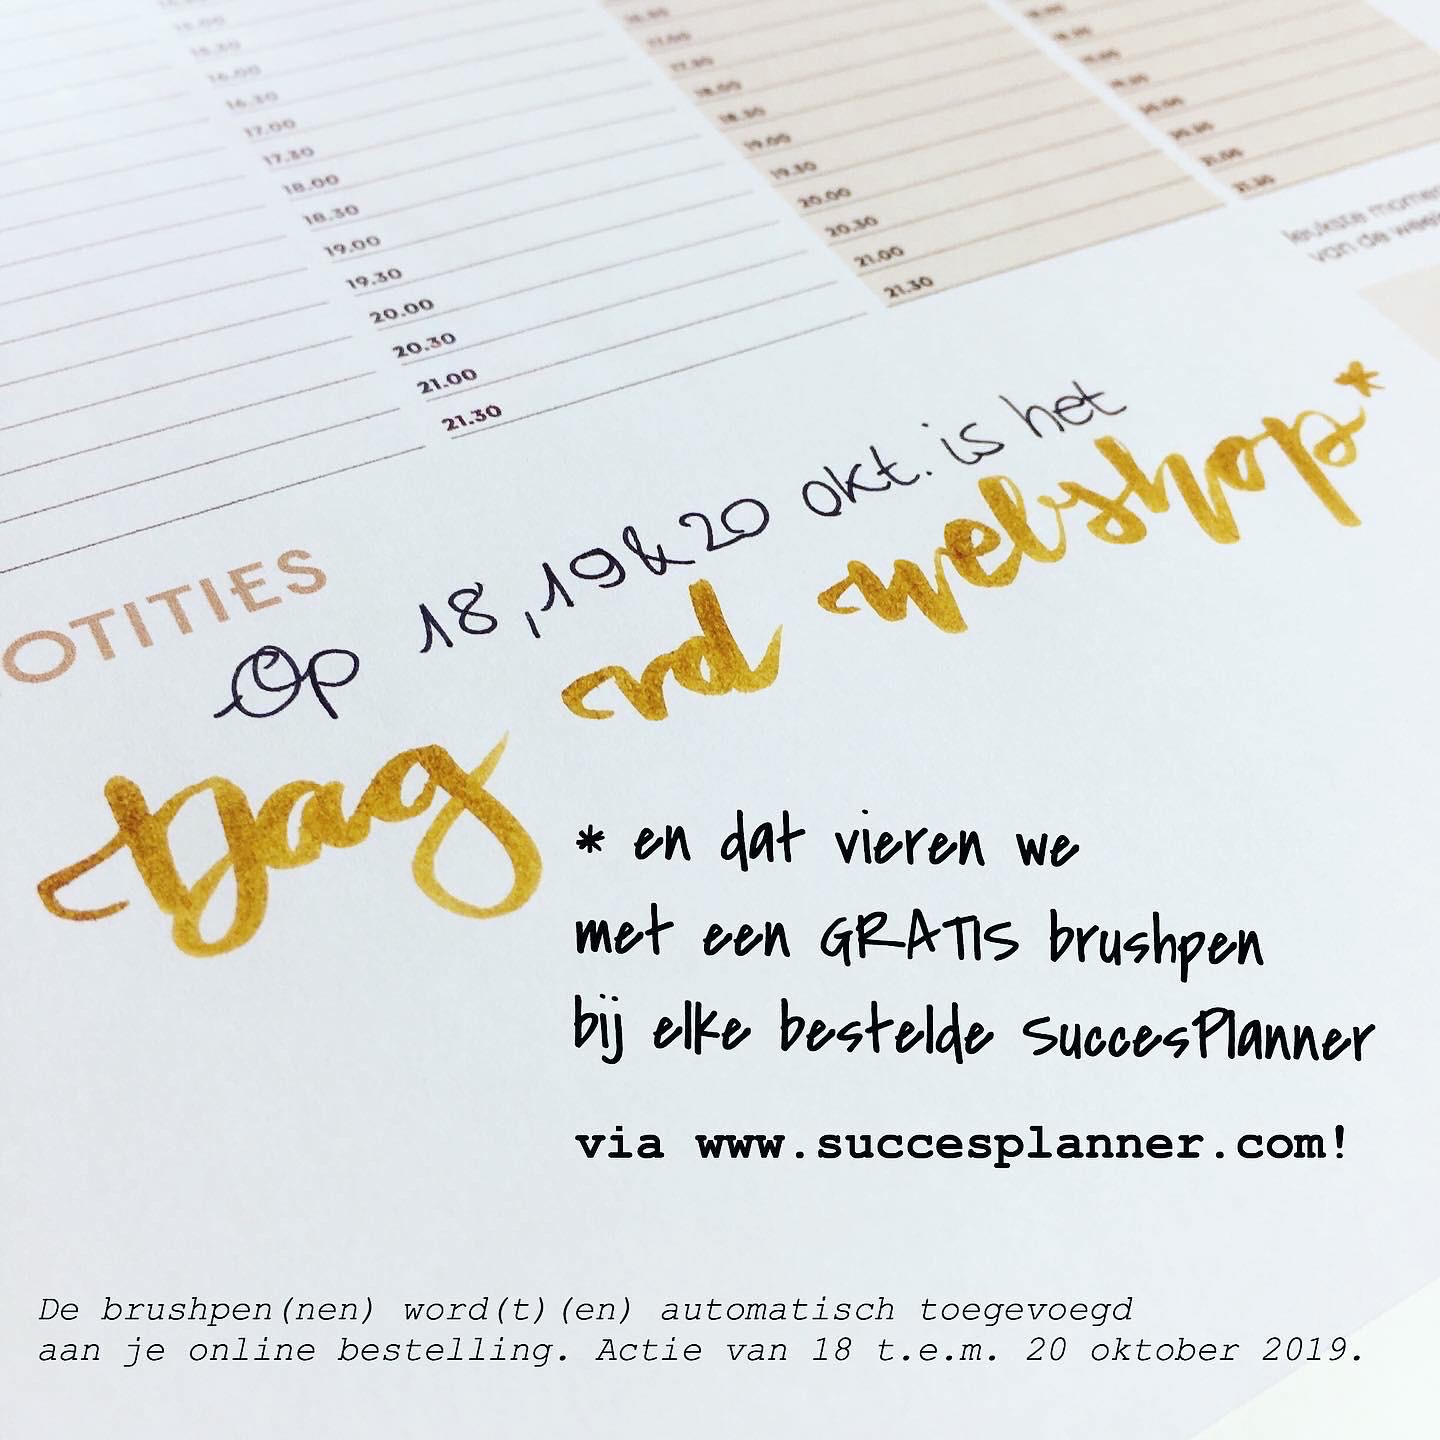 15.00
15.30
16.00
16.30
17.00
17.30
18.00
18.30
19.00
19.30
20.00
20.30
21.00
21.30
17.00
17.30
18.00
18.30
19.00
19.30
20.00
20.30
21.00
21.30
20.30
21.00
21.30
leukste
van de
OTITIES
Op 18, 19 & 20 okt. is het
Dag vd webshop*
* en dat vieren we
met een GRATIS brushpen
bij elke bestelde SuccesPlanner
via www.succesplanner.com!
De brushpen(nen) word(t)(en) automatisch toegevoegd
aan je online bestelling. Actie van 18 t.e.m. 20 oktober 2019.